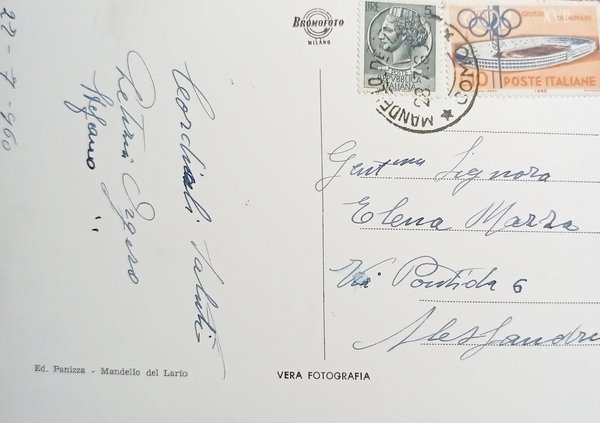 22-7-960
Cordiali Saluti
Stefano
BROMOFOTO
MILANO
LIRE 5
REPUBBLICA
ITALIANA
GIOCHI OLIMPIADE
POSTE ITALIANE
1960
MANDELLO
COMO
Gent.ma Signora
Elena Mazza
Via Pontida 6
Alessandri
Ed. Panizza - Mandello del Lario
VERA FOTOGRAFIA